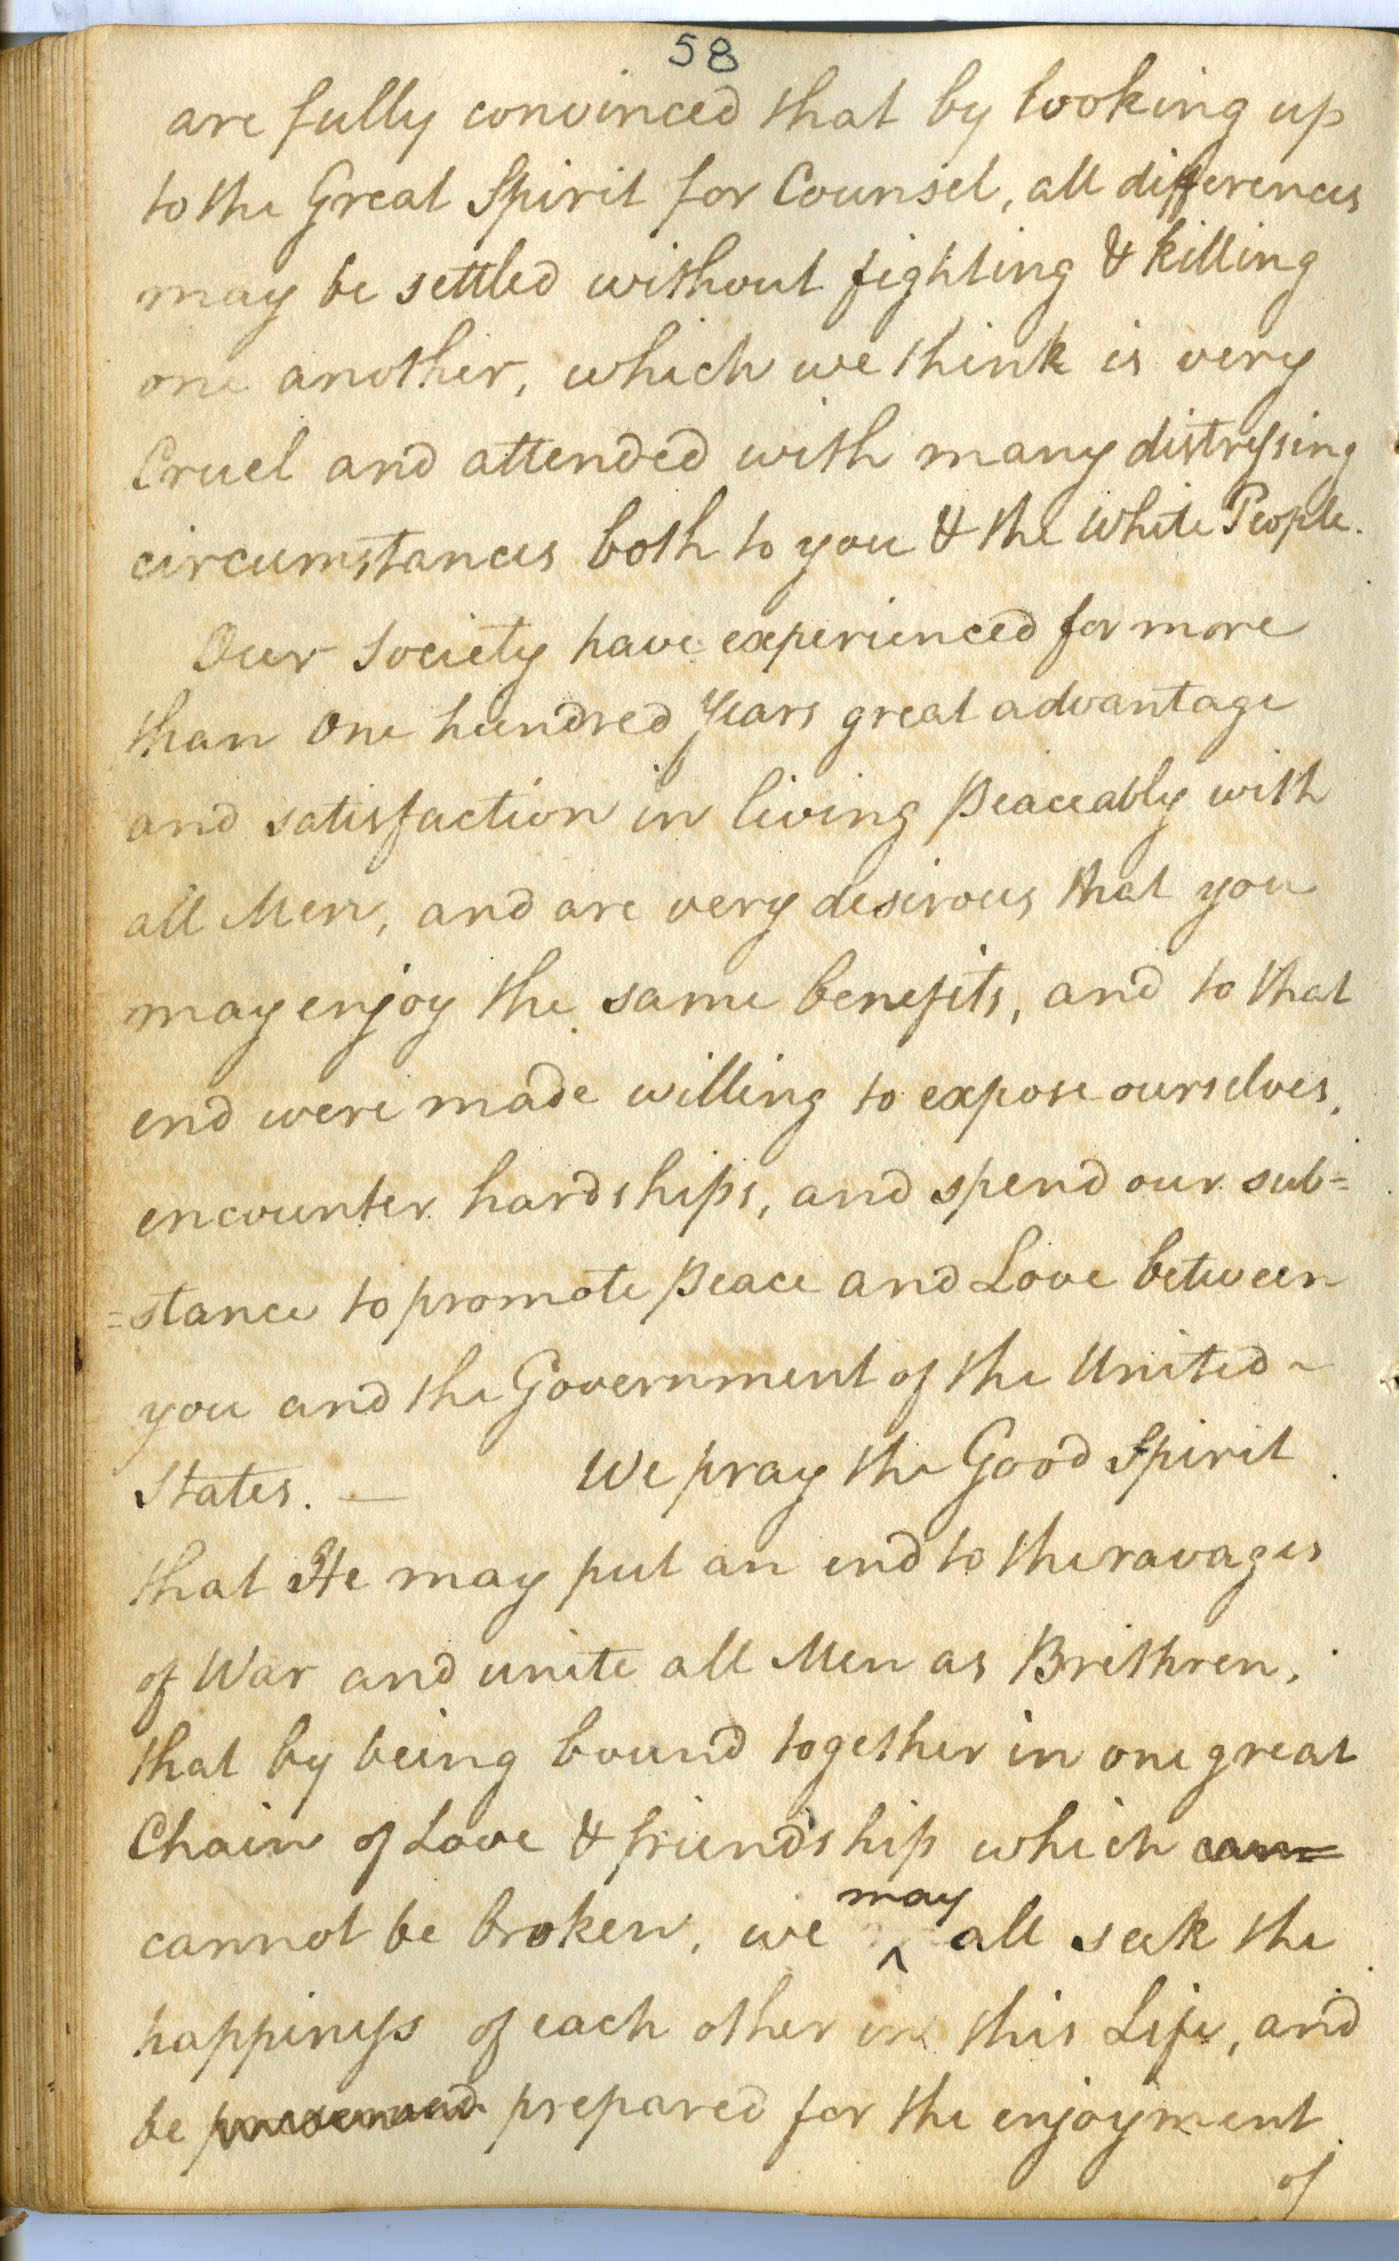 58
are fully convinced that by looking up
to the Great Spirit for Counsel, all differences
may be settled without fighting & killing
one another, which we think is very
Cruel and attended with many distressing
circumstances both to you & the White People.
Our Society have experienced for more
than One hundred Years great advantage
and satisfaction in living peaceably with
all Men, and are very desirous that you
may enjoy the same benefits, and to that
end were made willing to expose ourselves,
encounter hardships, and spend our sub=
=stance to promote peace and Love between
you and the Government of the United ~
States. — We pray the Good Spirit
that He may put an end to the ravages
of War and unite all Men as Brethren,
that by being bound together in one great
Chain of Love & friendship which can=
cannot be broken, we may all seek the
happiness of each other in this Life, and
be prepared for the enjoyment
of